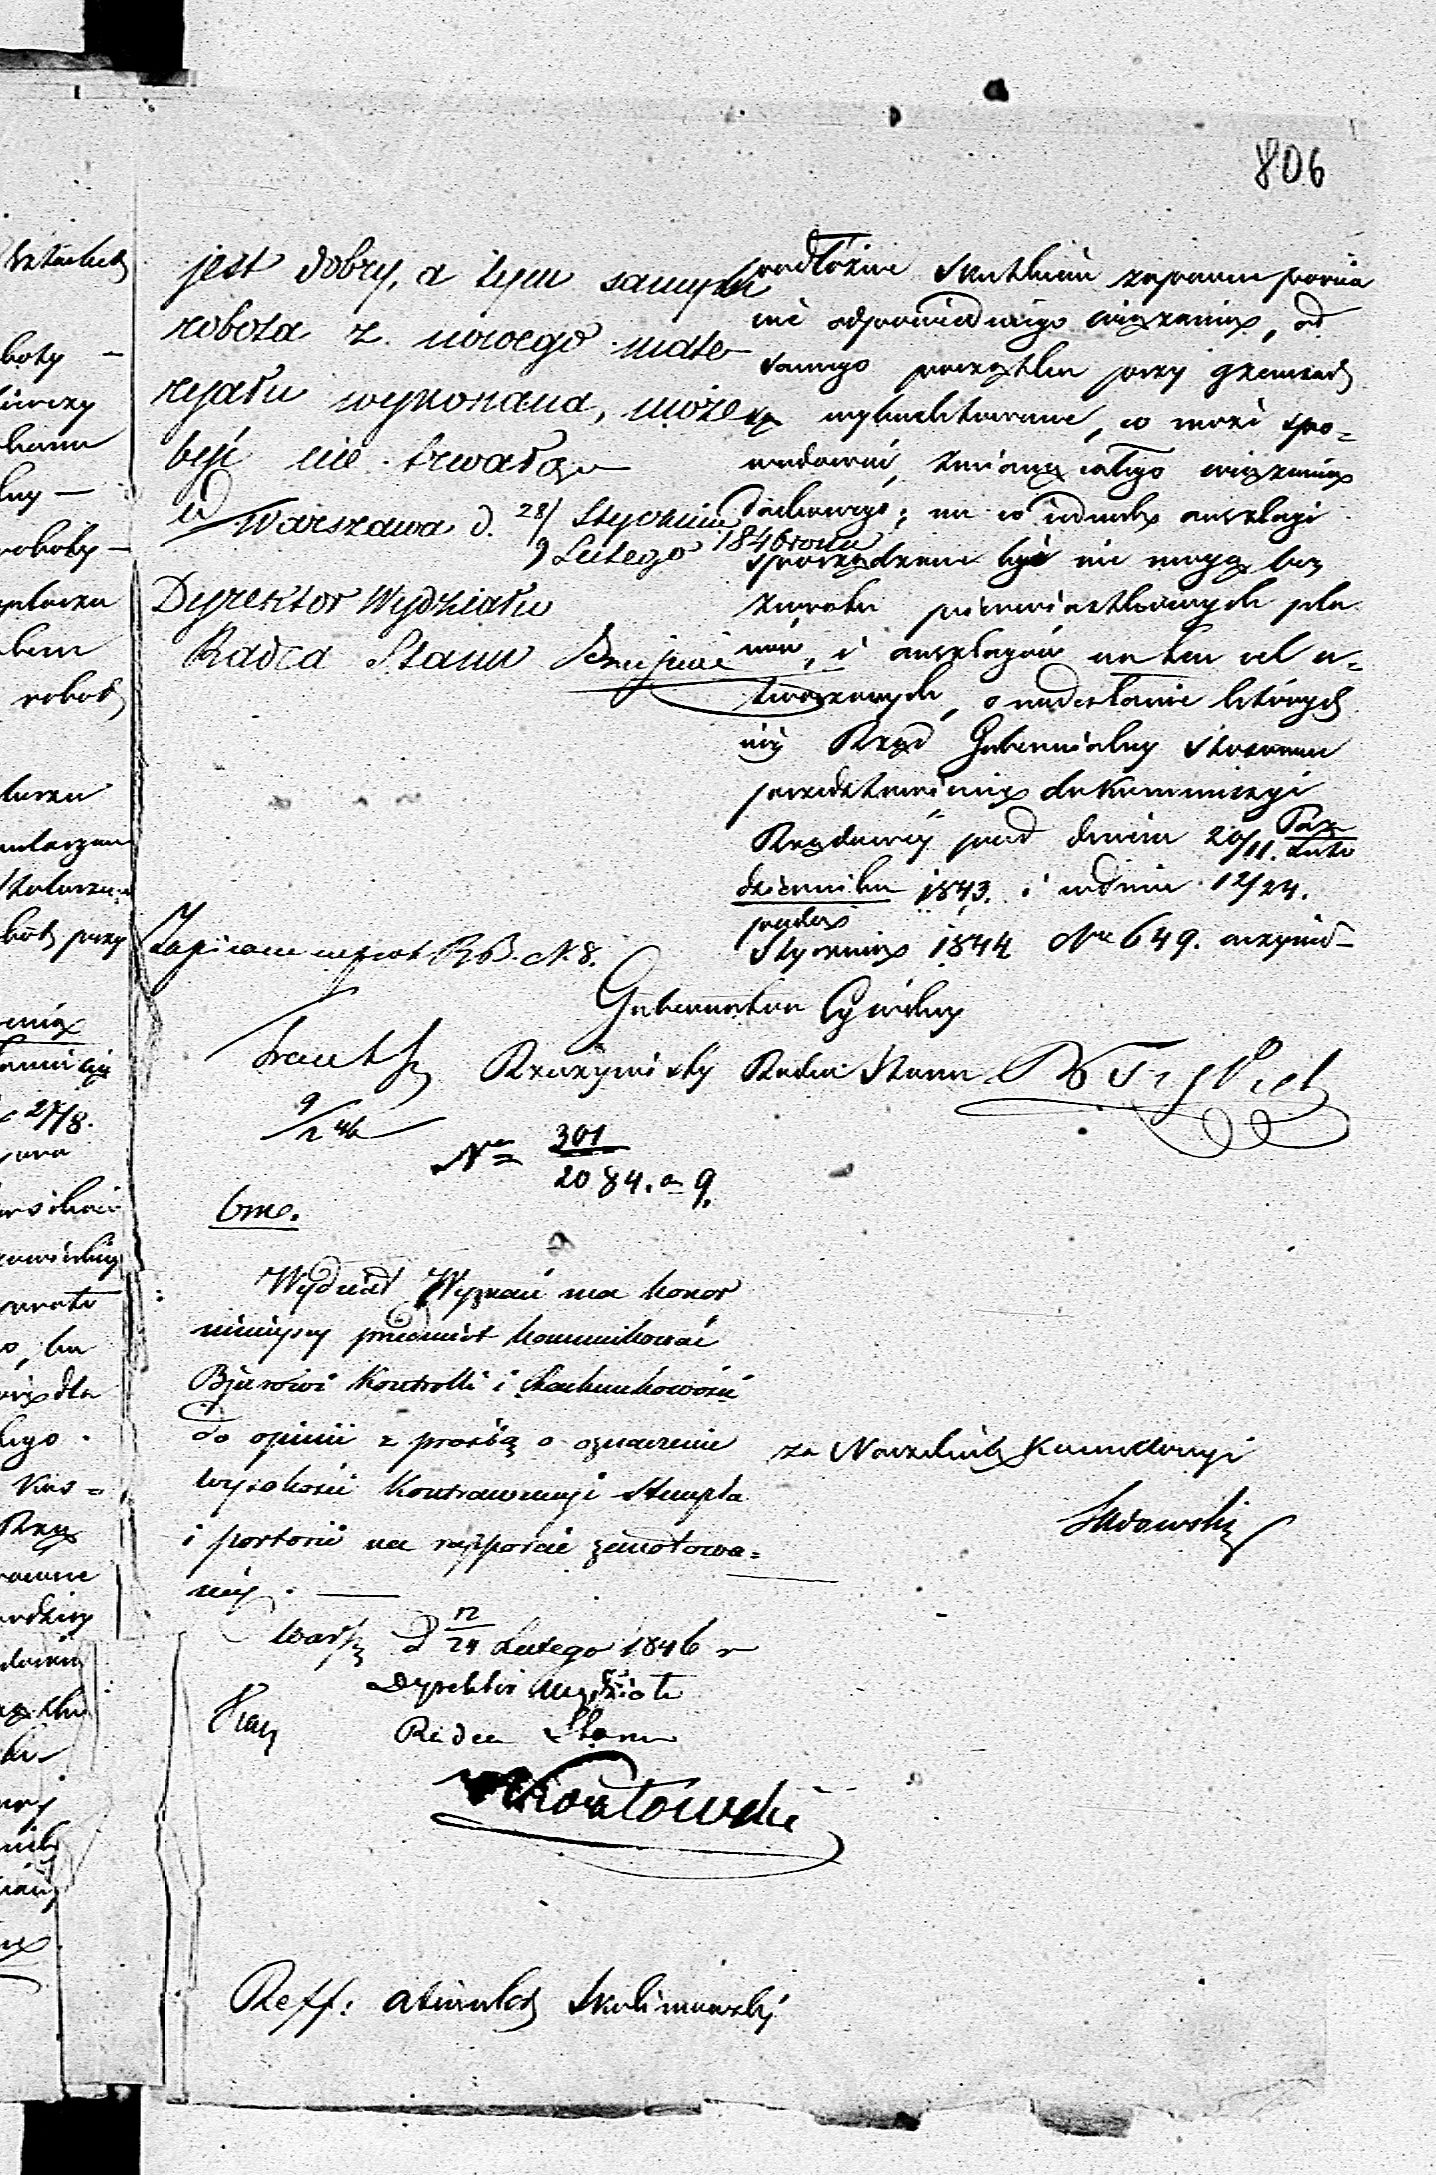 806
jest dobry, a tym samym
robota z nowego mate
ryału wykonana, może
być nie trwałą
Warszawa d. 28/ Stycznia
9 Lutego 1846 roku
Dyrektor Wydziału
Radca Stanu
podłużne skutkiem zapewne
nie odpowiedniego wiązania, od
samego początku przy gzemsach
wybudowane, co może spo-
wodować zmianę całego wiązania
dachowego; na co jednak anszlagi
sporządzone być nie mogą bez
zwrotu pierwiastkowych pla
nów, i anszlagów na ten cel u-
tworzonych, o nadesłanie których
Rząd Gubernialny
przedstawienia do Kommissyi
Rządowej pod dniem 20/11. Paź
dziernika 1843. i w dniu 12/24.
Stycznia 1844 Nr 649. uczynił
Zapisane N. 8.
Gubernator Cywilny
Rzeczywisty Radca Stanu
9/2 46
No 301
2084. a 9.
bme.
Wydział Wyznań ma honor
niniejszy przedmiot kommunikować
Bjurowi Kontrolli i Rachunkowości
do opinii z prośbą o oznaczenie
wysokości Kontrawencyi Stempla
i portorii na rapporcie zanotowa=
nej.
za Naczelnika Kancellaryi
Sadowski
Warsz d 12/24 Lutego 1846 r
Dyrektor Wydziału
Radca Stanu
Reff: Skolimowski